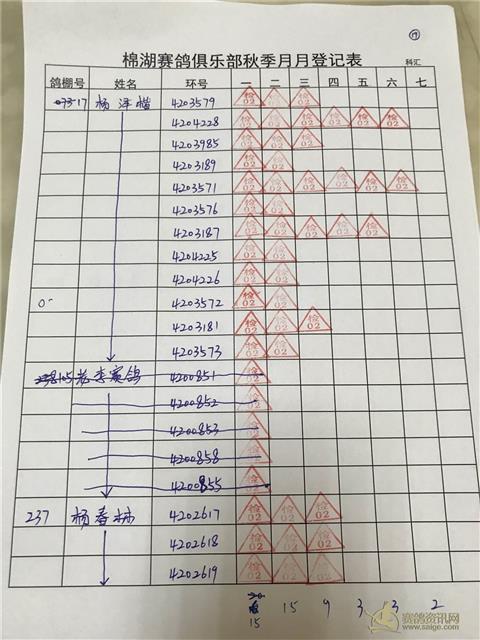 ⑰
棉湖赛鸽俱乐部秋季月月登记表
科汇
鸽棚号 姓名 环号 一 二 三 四 五 六 七
4203579 检02 检02 检02
4204228 检02 检02 检02 检02 检02 检02
4203985 检02 检02 检02
4203189 检02 检02
4203571 检02 检02 检02 检02 检02 检02
4203576 检02 检02
4203187 检02 检02 检02 检02 检02
4204225 检02 检02
4204226 检02 检02
4203572 检02 检02
4203181 检02 检02 检02
4203573 检02 检02
赛鸽 4200851 检02
4200852 检02
4200853 检02
4200858 检02
4200855 检02
237 杨春林 4202617 检02 检02 检02
4202618 检02 检02 检02
4202619 检02 检02 检02
15 15 9 3 3 2
赛鸽资讯网
www.saige.com